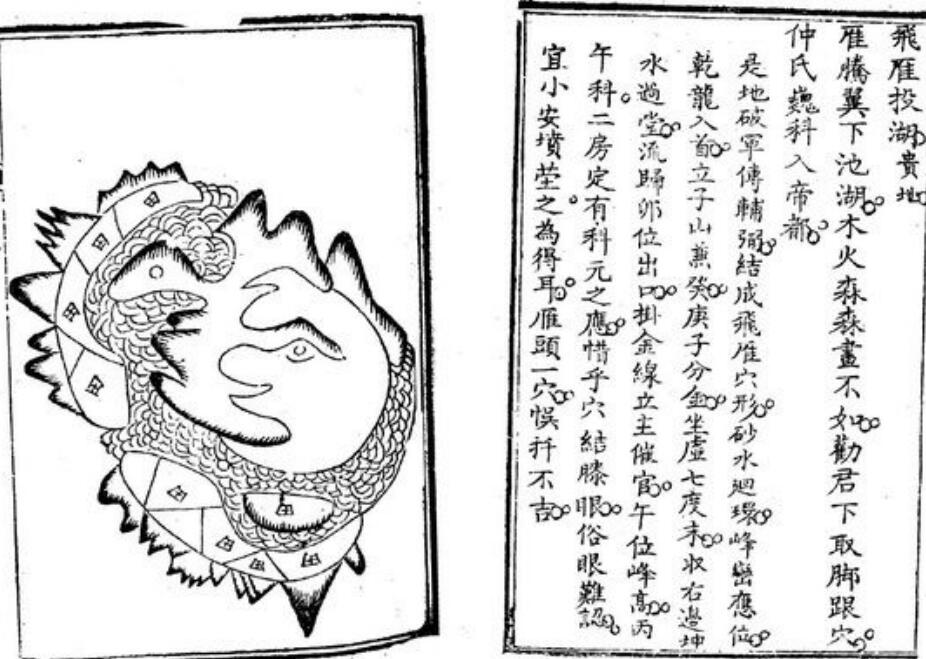 飛雁投湖貴地。
雁騰翼下池湖。木火森森畫不如。勸君下取腳跟穴。
仲氏巍科入帝都。
是地破軍傳輔弼。結成飛雁穴形。砂水迴環。峰巒應位。
乾龍入首。立子山兼癸。庚子分金。坐虛七度末。收右邊坤
水過堂。流歸卯位出口。掛金線立主催官。午位峰高。丙
午科。二房定有科元之應。惜乎穴結膝眼。俗眼難認。
宜小安墳塋。之為得耳。雁頭一穴。悞扦不吉。
田
田
田
田
田
田
田
田
田